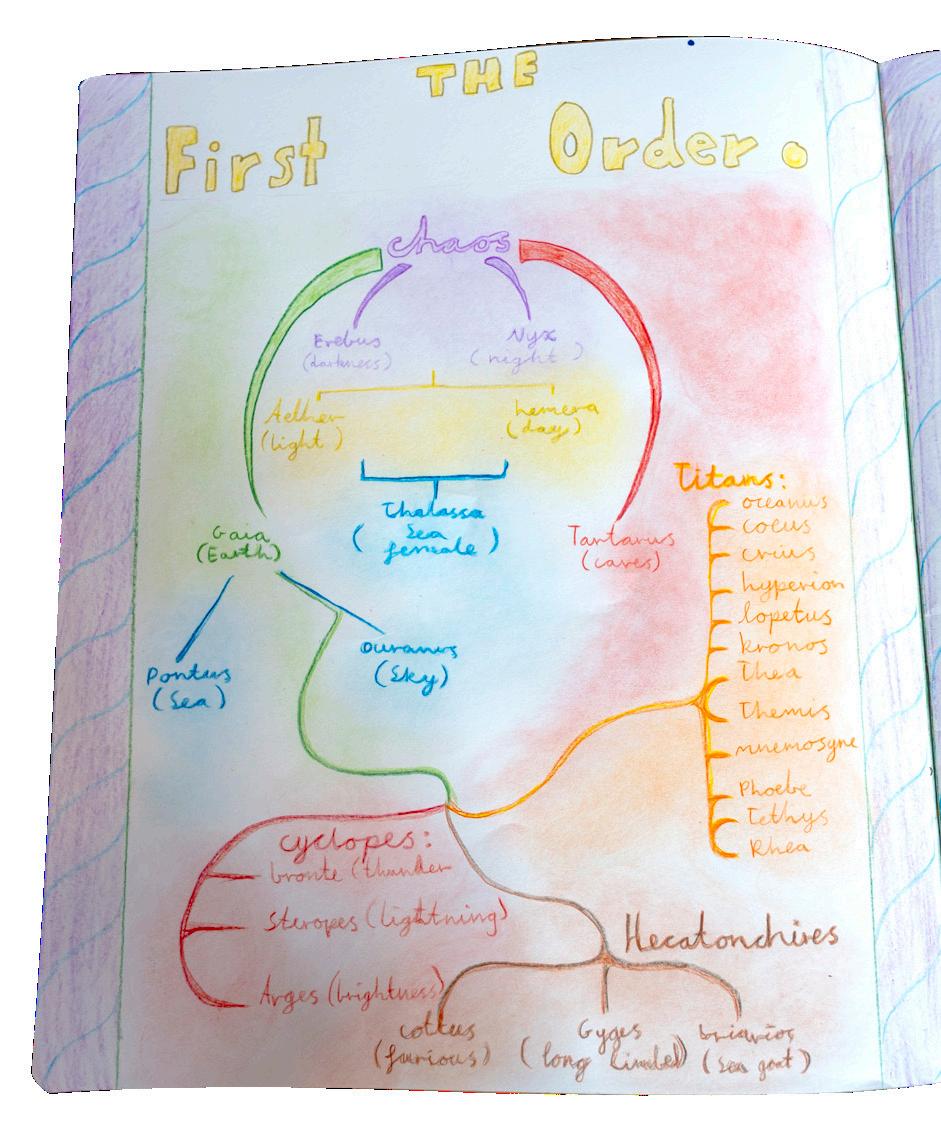 THE
First Order.
chaos
Erebus
(darkness)
Nyx
(night)
Aether
(light)
hemera
(day)
Thalassa
(Sea
female)
Gaia
(Earth)
Tartarus
(caves)
Pontus
(Sea)
Ouranus
(Sky)
Titans:
oceanus
coeus
crius
hyperion
lopetus
kronos
Thea
Themis
mnemosyne
Phoebe
Tethys
Rhea
cyclopes:
bronte (thunder
Steropes (lightning)
Arges (brightness)
Hecatonchires
cottus
(furious)
Gyges
(long limbed)
briarios
(sea goat)